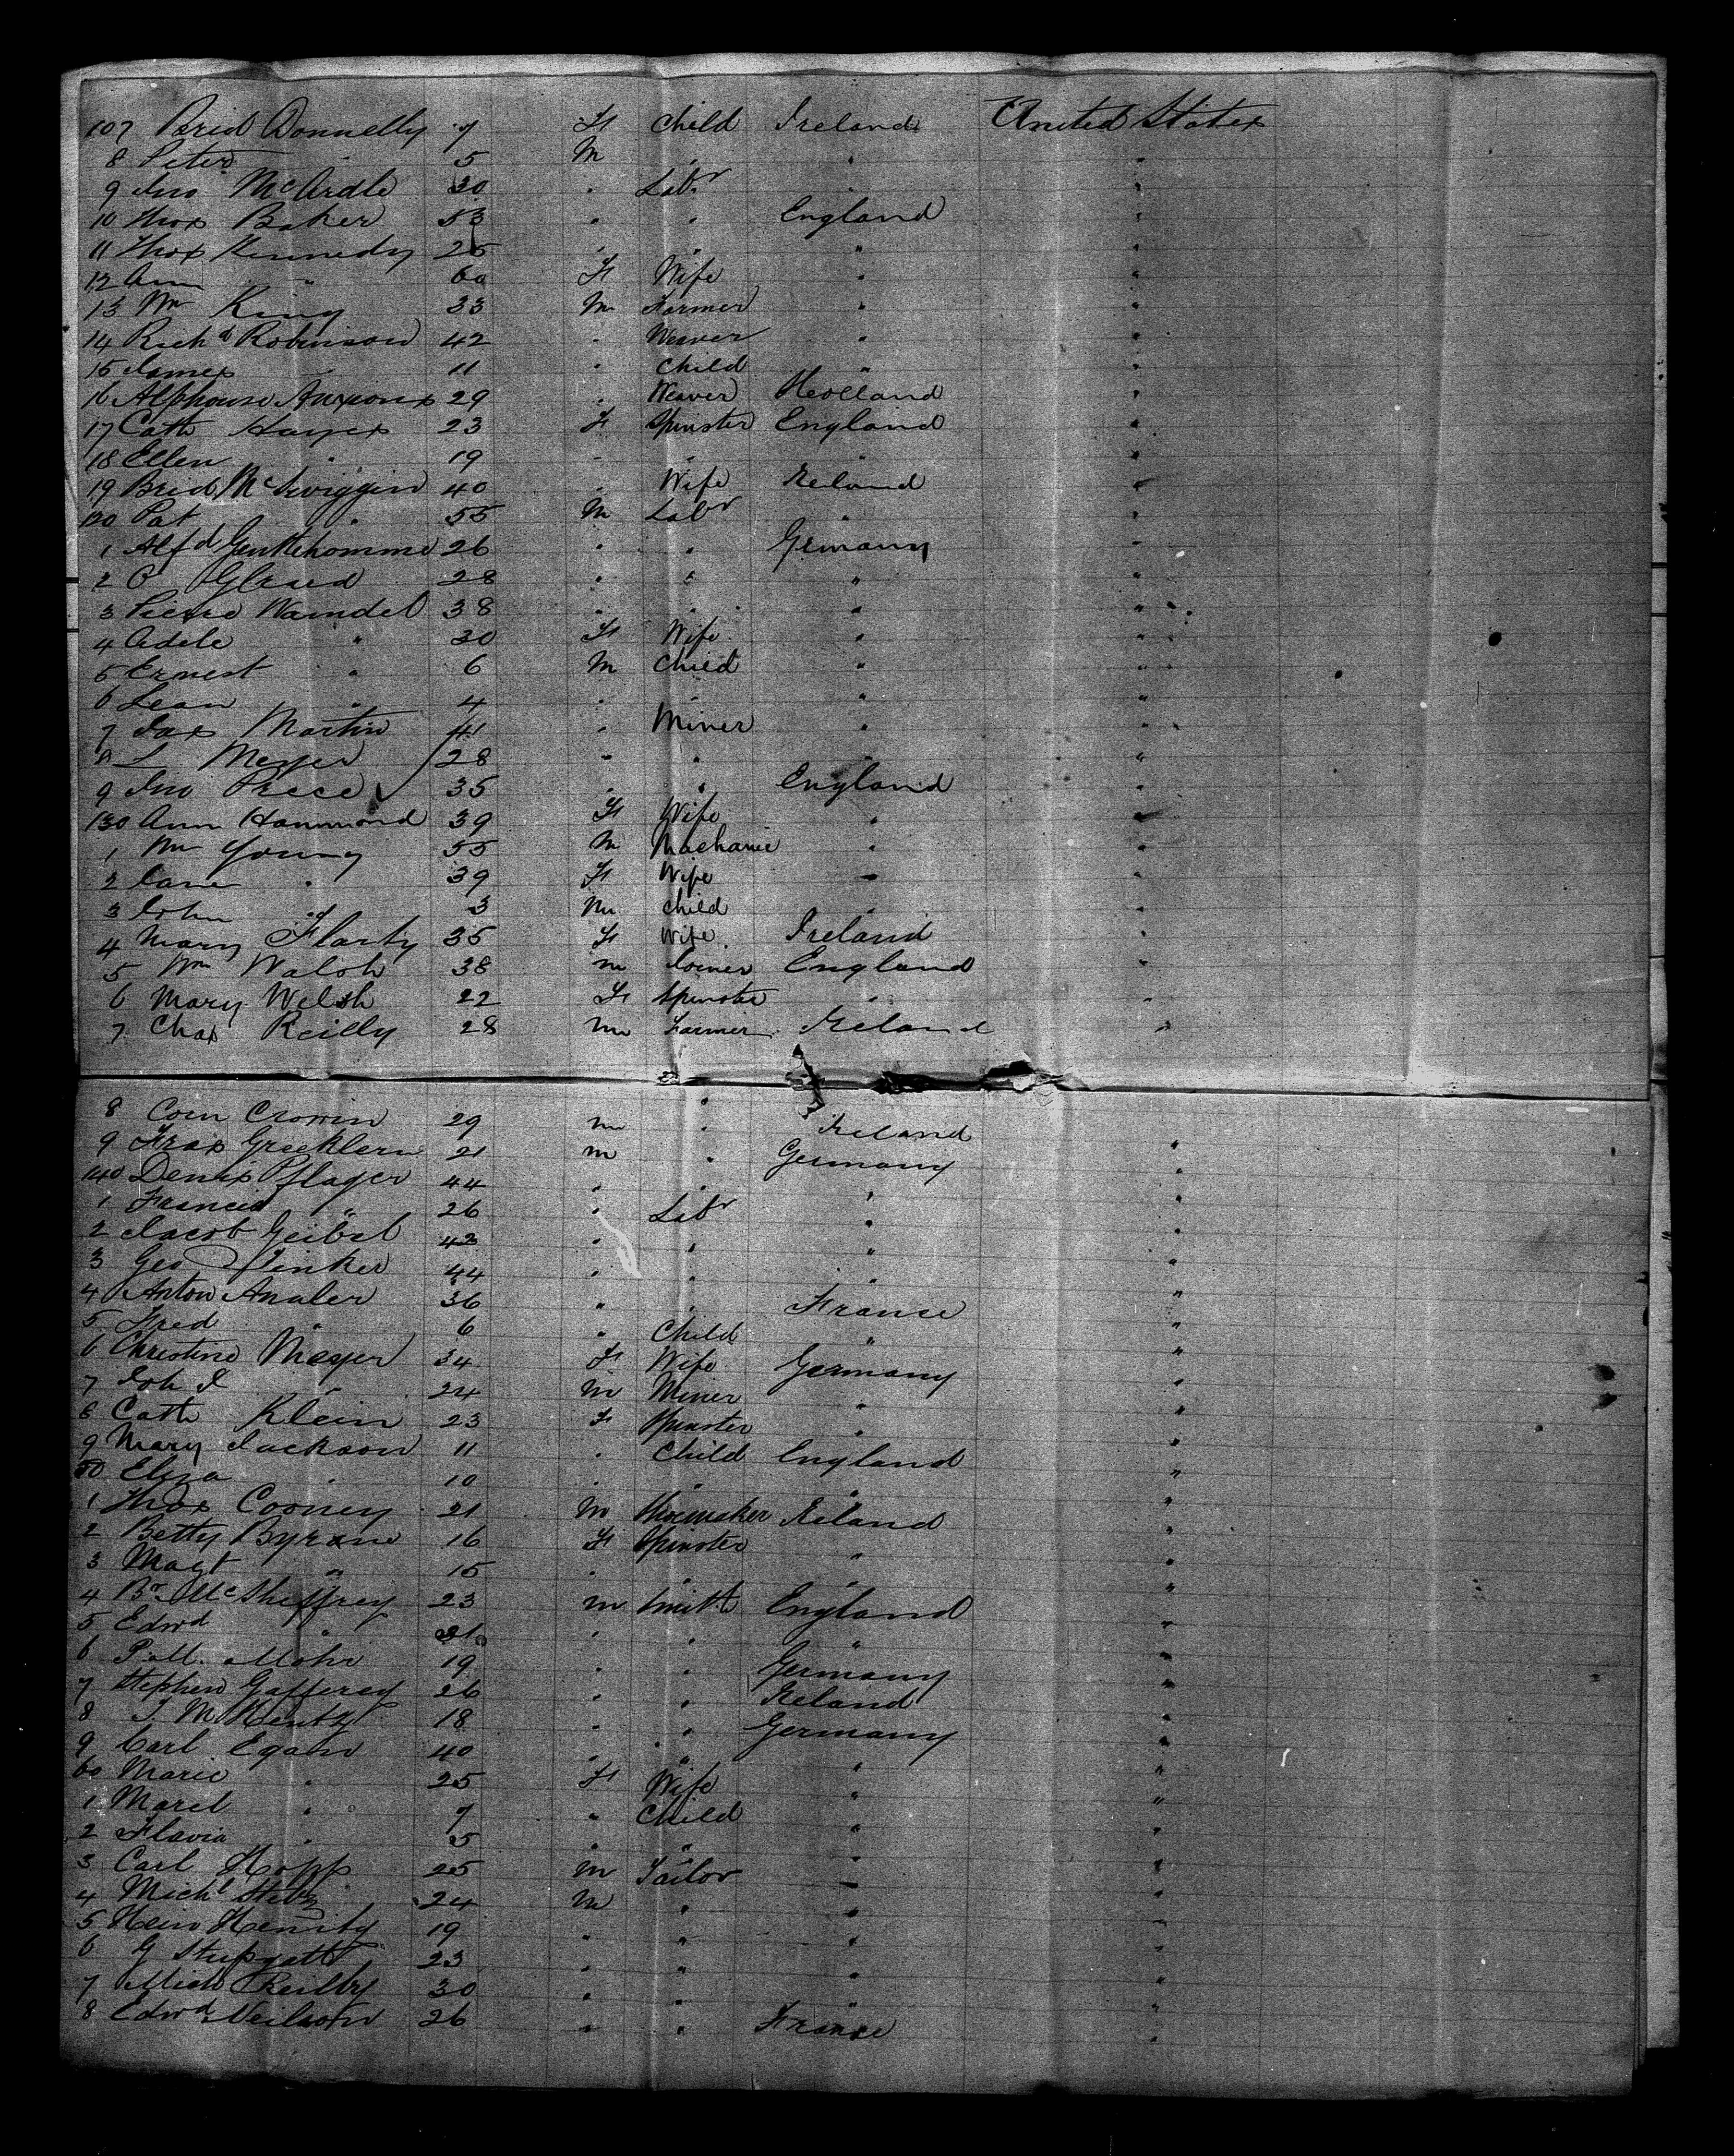 107 Brid Donnelly 7 F Child Ireland United States
8 Peter " 5 M " " "
9 Jno McArdle 30 " Labr " "
10 Thos Baker 53 " " England "
11 Thos Kennedy 25 " " " "
12 Ann " 60 F Wife " "
13 Wm King 33 M Farmer " "
14 Richd Robinson 42 " Weaver " "
15 James " 11 " Child " "
16 Alphonse 29 " Weaver Holland "
17 Cath Hayes 23 F Spinster England "
18 Ellen " 19 " " " "
19 Brid McSwiggin 40 " Wife Ireland "
120 Pat " 55 M Labr " "
1 Alfd Gentlehomme 26 " " Germany "
2 28 " " " "
3 Pierre Warndel 38 " " " "
4 Adele " 30 F Wife " "
5 Ernest " 6 M Child " "
6 Lean " 4 " " " "
7 Jas Martin 41 " Miner " "
8 L Meyer 28 " " " "
9 Jno Preece 35 " " England "
130 Ann Hammond 39 F Wife " "
1 Wm Young 55 M Machanic " "
2 Jane " 39 F Wife " "
3 John " 3 M Child " "
4 Mary Flarty 35 F Wife Ireland "
5 Wm Walsh 38 M Joiner England "
6 Mary Welsh 22 F Spinster " "
7 Chas Reilly 28 M Farmer Ireland "
8 Corn Cronin 29 M " Ireland
9 21 M " Germany "
140 Denis Pflager 44 " " " "
1 Francis " 26 " Labr " "
2 Jacob Geibel 42 " " " "
3 Geo 44 " " " "
4 Anton Analer 36 " " France "
5 Fred " 6 " Child " "
6 Christine Meyer 34 F Wife Germany "
7 Joh I " 24 M Miner " "
8 Cath Klein 23 F Spinster " "
9 Mary Jackson 11 " Child England "
50 Eliza " 10 " " " "
1 Thos Cooney 21 M Shoemaker Ireland "
2 Betty Byrane 16 F Spinster " "
3 Magt " 15 " " " "
4 Br McSheffrey 23 M Smith England "
5 Edwd " 21 " " " "
6 P.M. Mohr 19 " " Germany "
7 Stephen Gafferey 26 " " Ireland "
8 18 " " Germany "
9 Carl Egan 40 " " " "
60 Marie " 25 F Wife " "
1 Marel " 7 " Child " "
2 Flavia " 5 " " " "
3 Carl Hopp 25 M Tailor " "
4 Michl 24 M " " "
5 19 " " " "
6 G 23 " " " "
7 Mich Reilly 30 " " " "
8 Edwd Neilson 26 " " France "